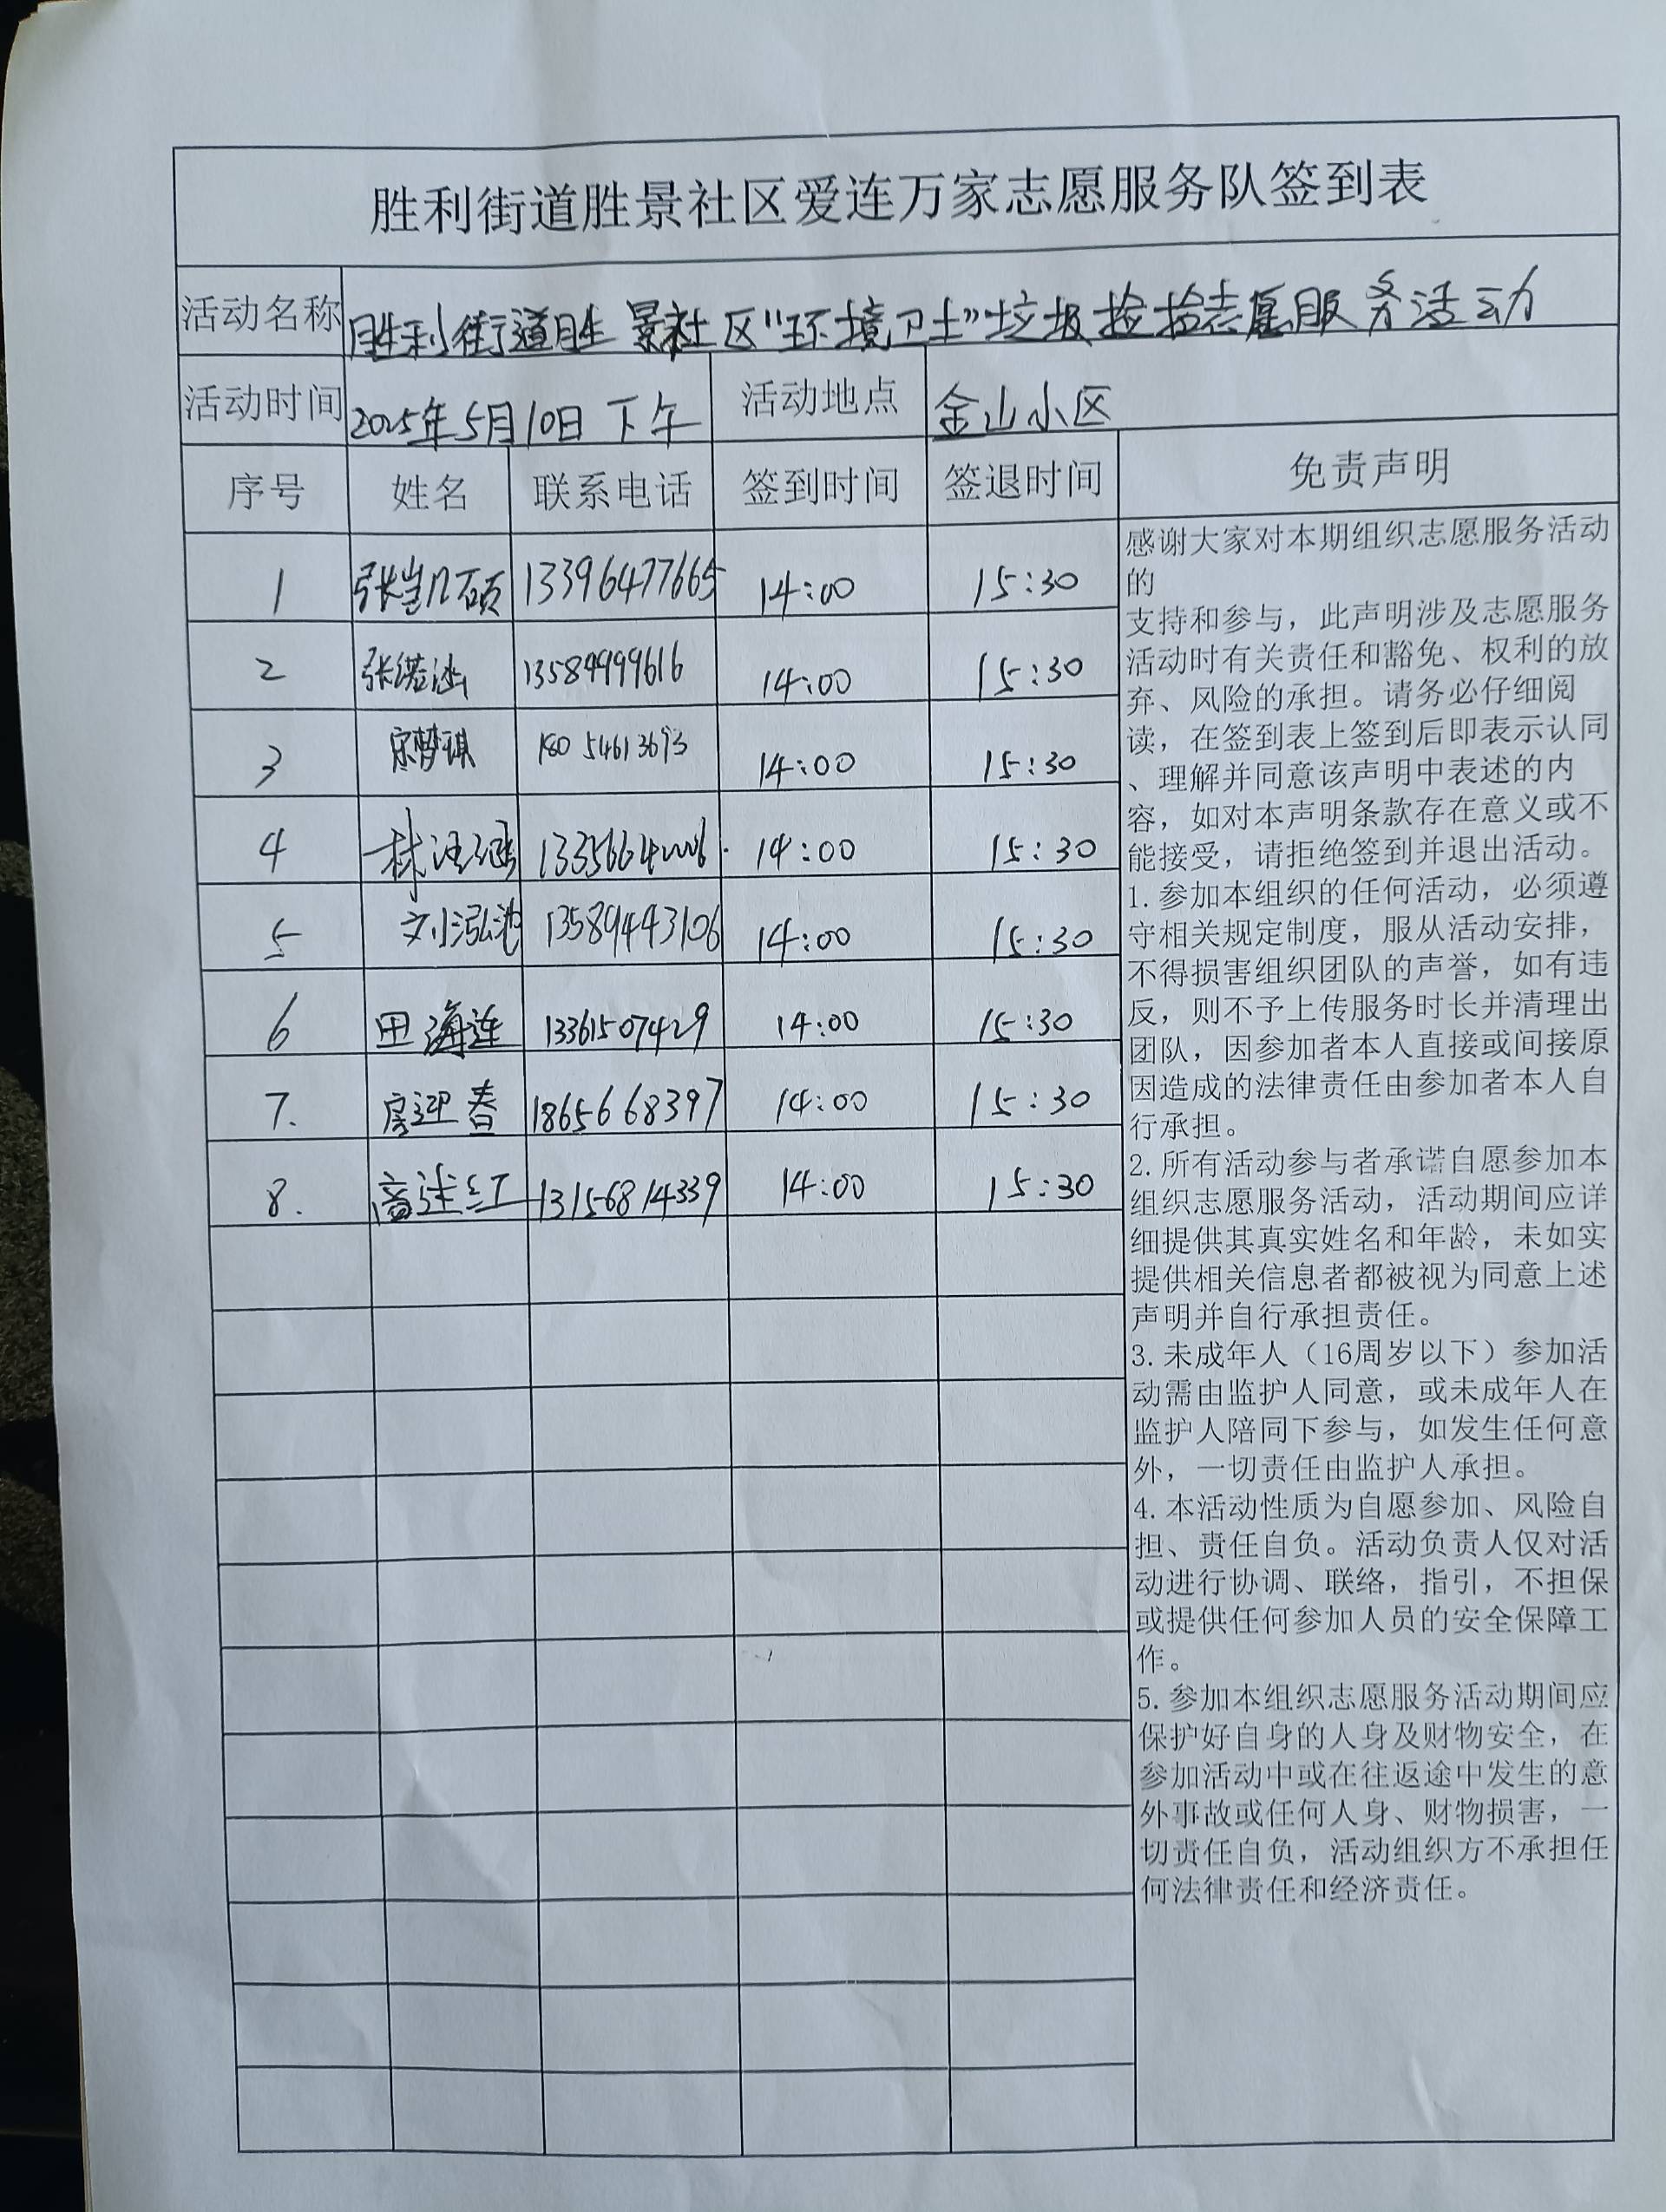 胜利街道胜景社区爱连万家志愿服务队签到表
活动名称 胜利街道胜景社区"环境卫士"垃圾捡拾志愿服务活动
活动时间 2025年5月10日下午 活动地点 金山小区
序号 姓名 联系电话 签到时间 签退时间 免责声明
1 张凯硕 13396477665 14:00 15:30
2 张诺涵 13589999616 14:00 15:30
3 宗梦琪 18054613693 14:00 15:30
4 14:00 15:30
5 刘泓池 13589443106 14:00 15:30
6 田海连 13361507429 14:00 15:30
7. 房迎春 18656668397 14:00 15:30
8. 高述红 13156814339 14:00 15:30
感谢大家对本期组织志愿服务活动
的
支持和参与，此声明涉及志愿服务
活动时有关责任和豁免、权利的放
弃、风险的承担。请务必仔细阅
读，在签到表上签到后即表示认同
、理解并同意该声明中表述的内
容，如对本声明条款存在意义或不
能接受，请拒绝签到并退出活动。
1.参加本组织的任何活动，必须遵
守相关规定制度，服从活动安排，
不得损害组织团队的声誉，如有违
反，则不予上传服务时长并清理出
团队，因参加者本人直接或间接原
因造成的法律责任由参加者本人自
行承担。
2.所有活动参与者承诺自愿参加本
组织志愿服务活动，活动期间应详
细提供其真实姓名和年龄，未如实
提供相关信息者都被视为同意上述
声明并自行承担责任。
3.未成年人（16周岁以下）参加活
动需由监护人同意，或未成年人在
监护人陪同下参与，如发生任何意
外，一切责任由监护人承担。
4.本活动性质为自愿参加、风险自
担、责任自负。活动负责人仅对活
动进行协调、联络，指引，不担保
或提供任何参加人员的安全保障工
作。
5.参加本组织志愿服务活动期间应
保护好自身的人身及财物安全，在
参加活动中或在往返途中发生的意
外事故或任何人身、财物损害，一
切责任自负，活动组织方不承担任
何法律责任和经济责任。